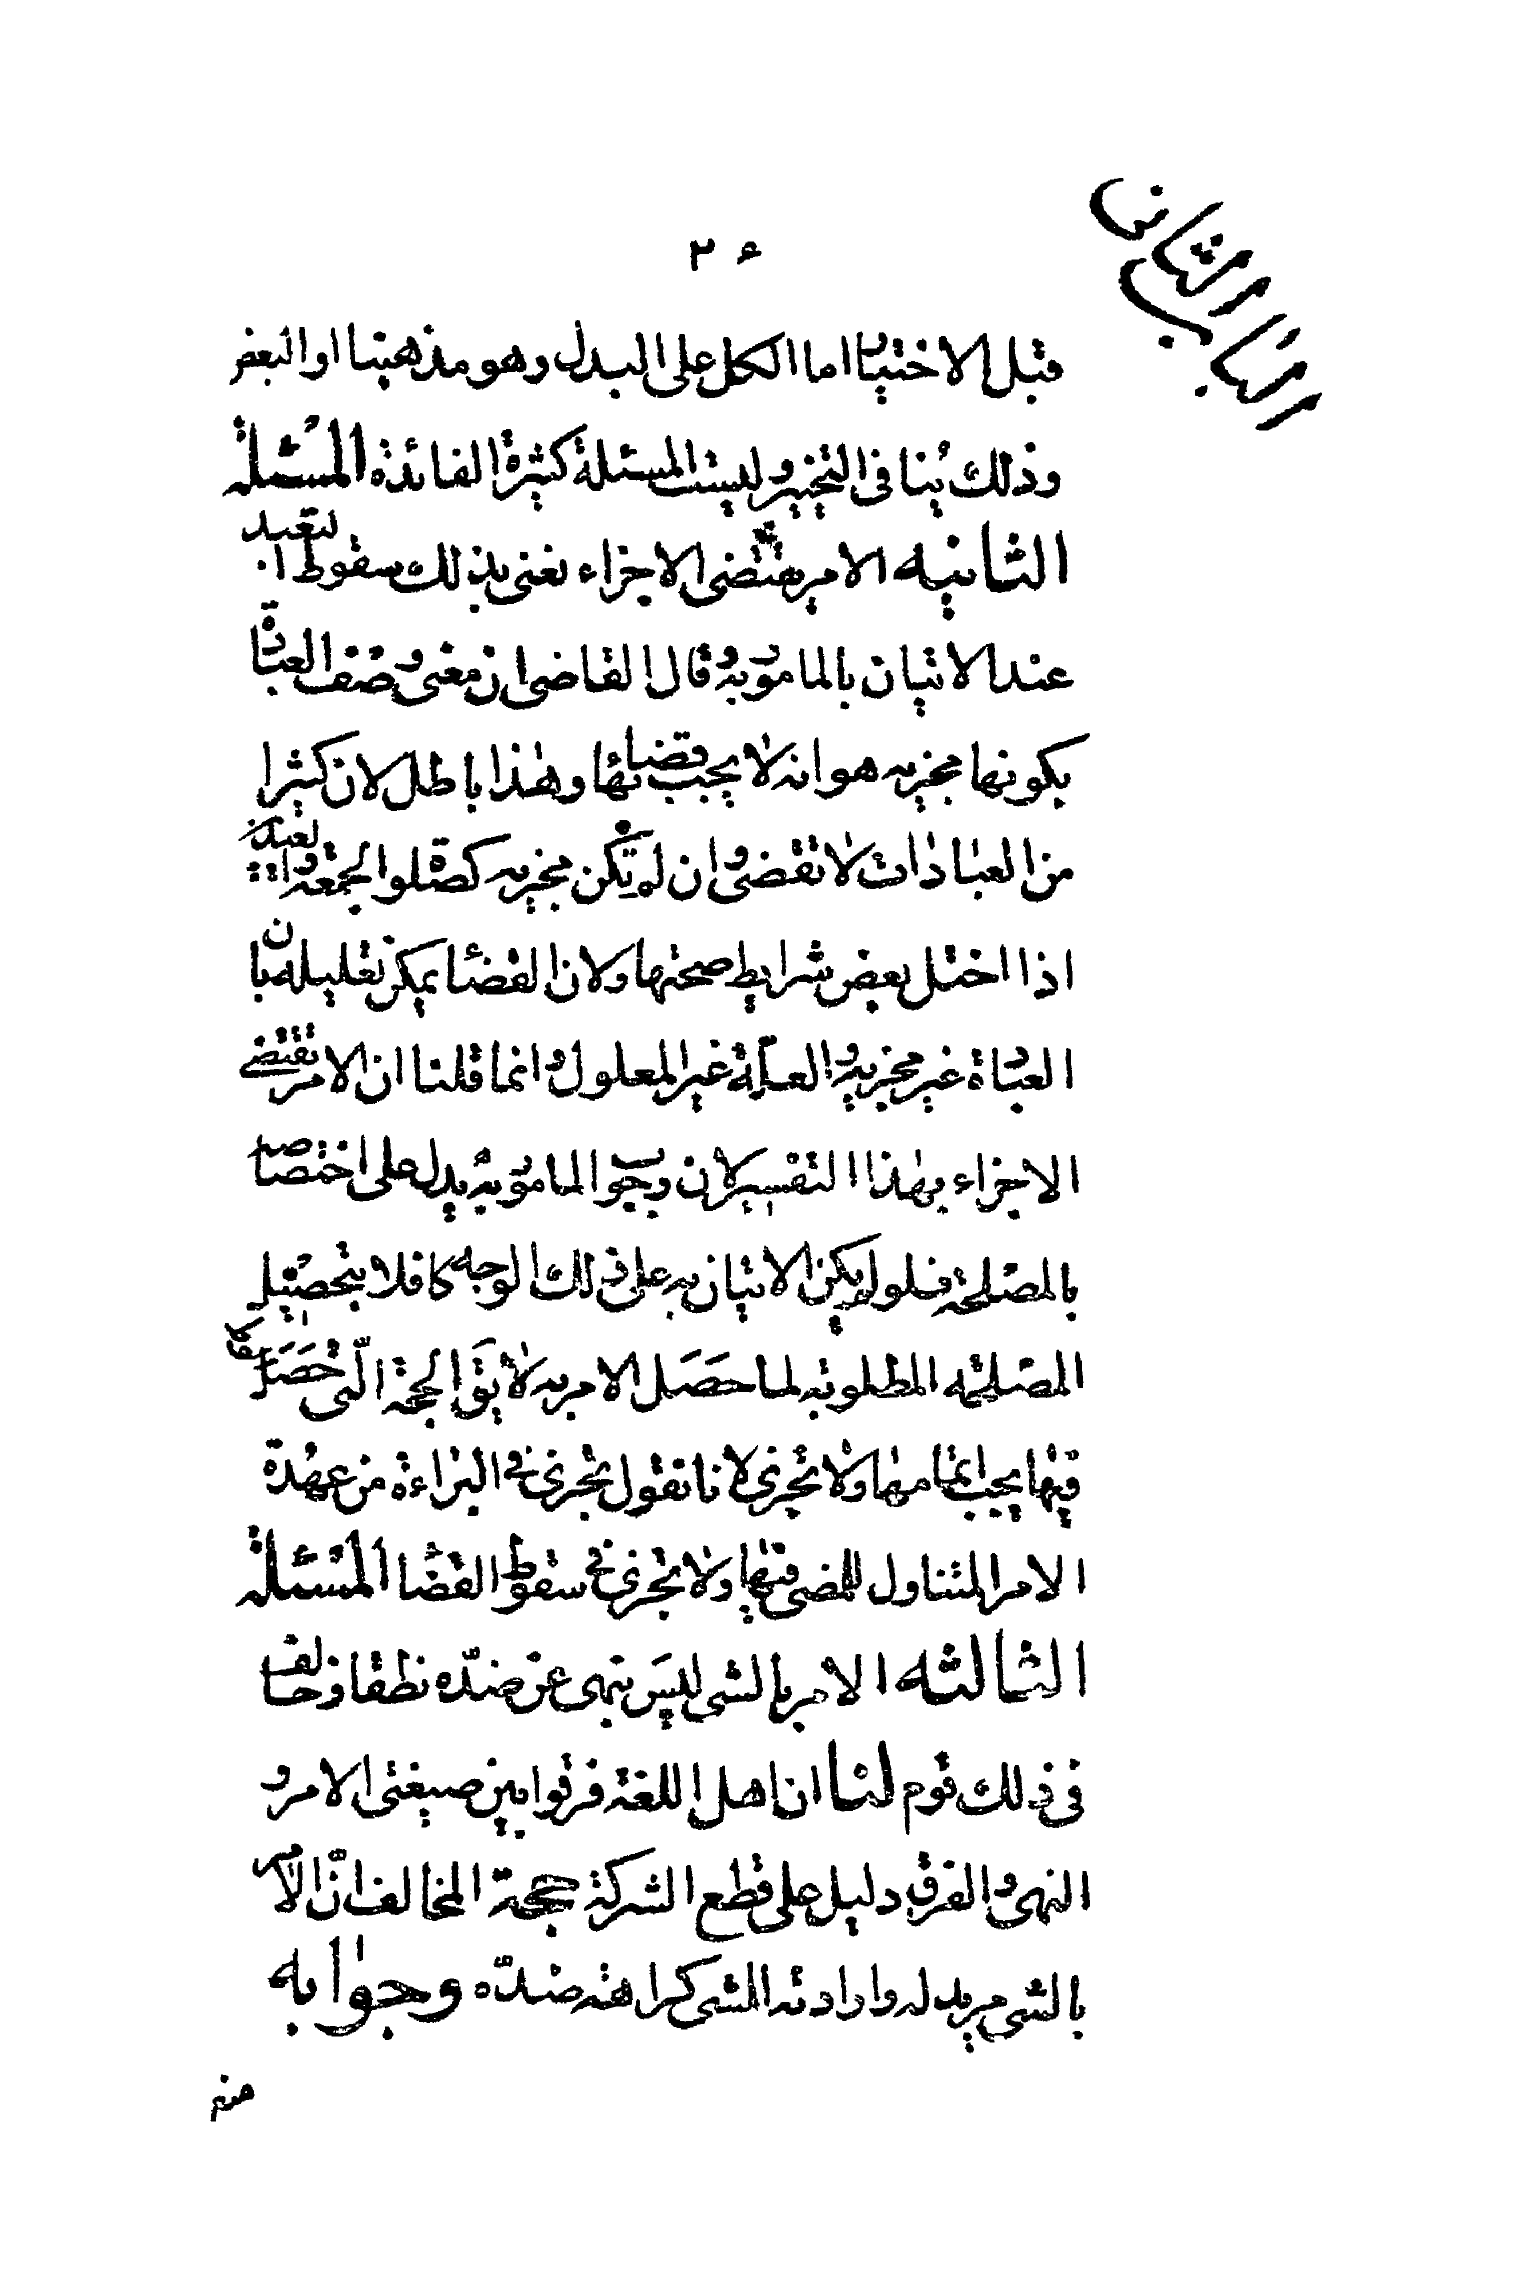 الباب الثانی
٢۶
قبل الاختیار اما الکل علی البدل وهو مذهبنا او البعض
وذلك ینافی التخییر ولیست المسئلة کثیرة الفائدة المسئلة
الثانیه الامر یقتضی الاجزاء نعنی بذلك سقوط التعبد
عند الاتیان بالمامور به وقال القاضی ان معنی وصف العبادة
بکونها مجزیه هو انه لا یجب قضائها وهذا باطل لان کثیرا
من العبادات لا تقضی وان لم تکن مجزیه کصلوة الجمعه والعیدین
اذا اختل بعض شرایط صحتها ولان القضا یمکن تعلیله بان
العبادة غیر مجزیه والعلة غیر المعلول وانما قلنا ان الامر یقتضی
الاجزاء بهذا التفسیر لان وجوب المامور به یدل علی اختصاصه
بالمصلحة فلو لم یکن الاتیان به علی ذلك الوجه کافلا بتحصیل
المصلحه المطلوبه لما حصل الامر به لا یق الحجة الّتی حصل
فیها یجب اتمامها ولا تجزی لانا نقول تجزی فی البراءة من عهدة
الامر المتناول للمضی فیها ولا تجزی فی سقوط القضا المسئلة
الثالثه الامر بالشی لیس بنهی عن ضدّه نطقا وخالف
فی ذلك قوم لنا ان اهل اللغة فرقوا بین صیغتی الامر و
النهی والفرق دلیل علی قطع الشرکة حجة المخالف انّ الآمر
بالشی مرید له وارادته الشی کراهته ضدّه وجوابه
منع